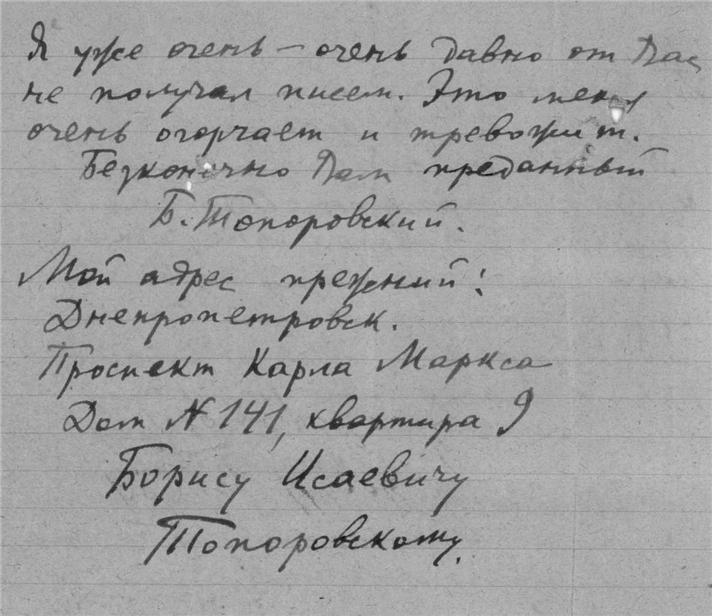 Я уже очень – очень давно от Вас
не получал писем. Это меня
очень огорчает и тревожит.
Безконечно Вам преданный
Б. Топоровский.
Мой адрес прежний:
Днепропетровск.
Проспект Карла Маркса
Дом № 141, квартира 9
Борису Исаевичу
Топоровскому.